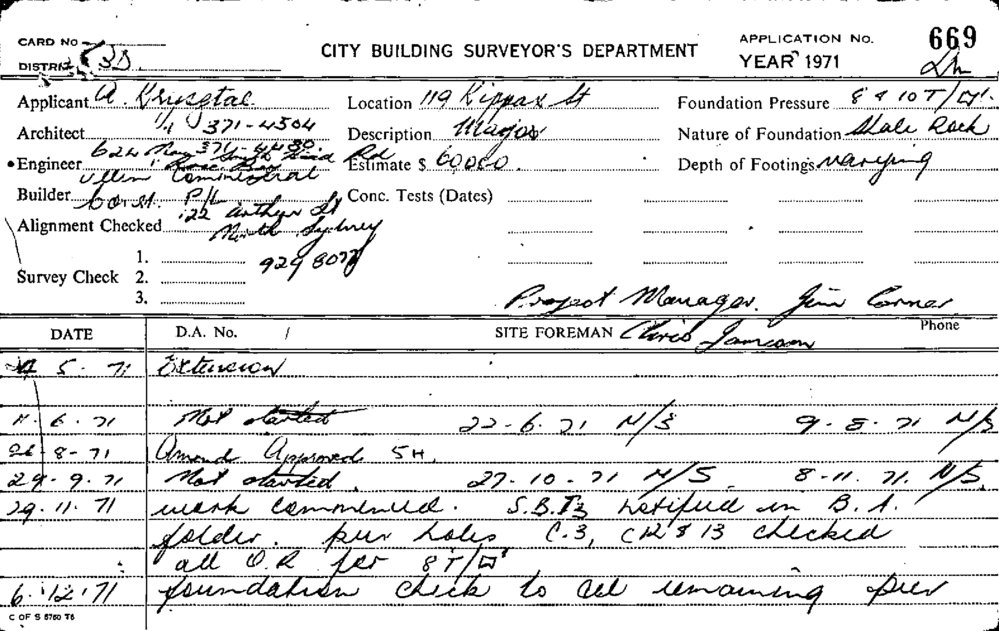 CARD No
DISTRICT 3D
CITY BUILDING SURVEYOR'S DEPARTMENT
APPLICATION No. 669
YEAR 1971
Applicant A. Krysgtal
Location 119 Kippax St
Foundation Pressure 8 & 10 T/□'
Architect 371-4504
Description Major
Nature of Foundation Shale Rock
Engineer 624 New South Head Rd
Rose Bay
Estimate $ 60000.
Depth of Footings varying
Builder Commercial
Const. P/L
Conc. Tests (Dates)
122 Arthur St
Alignment Checked North Sydney
929 8077
Survey Check 1.
2.
3.
Project Manager. Jim Corner
DATE D.A. No. / SITE FOREMAN Chris Jamieson Phone
5. 71 Extension
6. 71 Not started 22-6.71 N/S 9-8-71 N/S
26-8-71 Amend Approved SH.
29-9.71 Not started. 27-10.71 N/S 8-11.71. N/S
29.11.71 work commenced. notified in B.A.
folder. pier holes C.3, C12 & 13 checked
all O.R for 8T/□'
6.12.71 foundation check to all remaining pier
C OF S 5760 T6